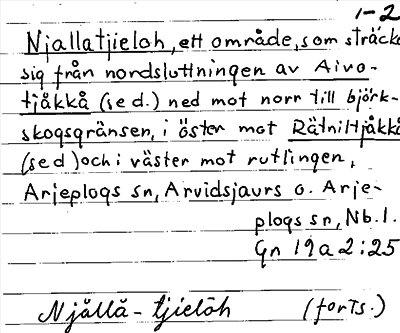 1-2
Njallatjieloh, ett område, som sträcke
sig från nordsluttningen av Aivo-
tjåkkå (se d.) ned mot norr till björk-
skogsgränsen, i öster mot Rätniltjåkkå
(se d) och i väster mot rutlingen,
Arjeplogs sn, Arvidsjaurs o. Arje-
plogs sn, Nb. l.
Gn 19a2:25
Njållå-tjielōh (forts.)